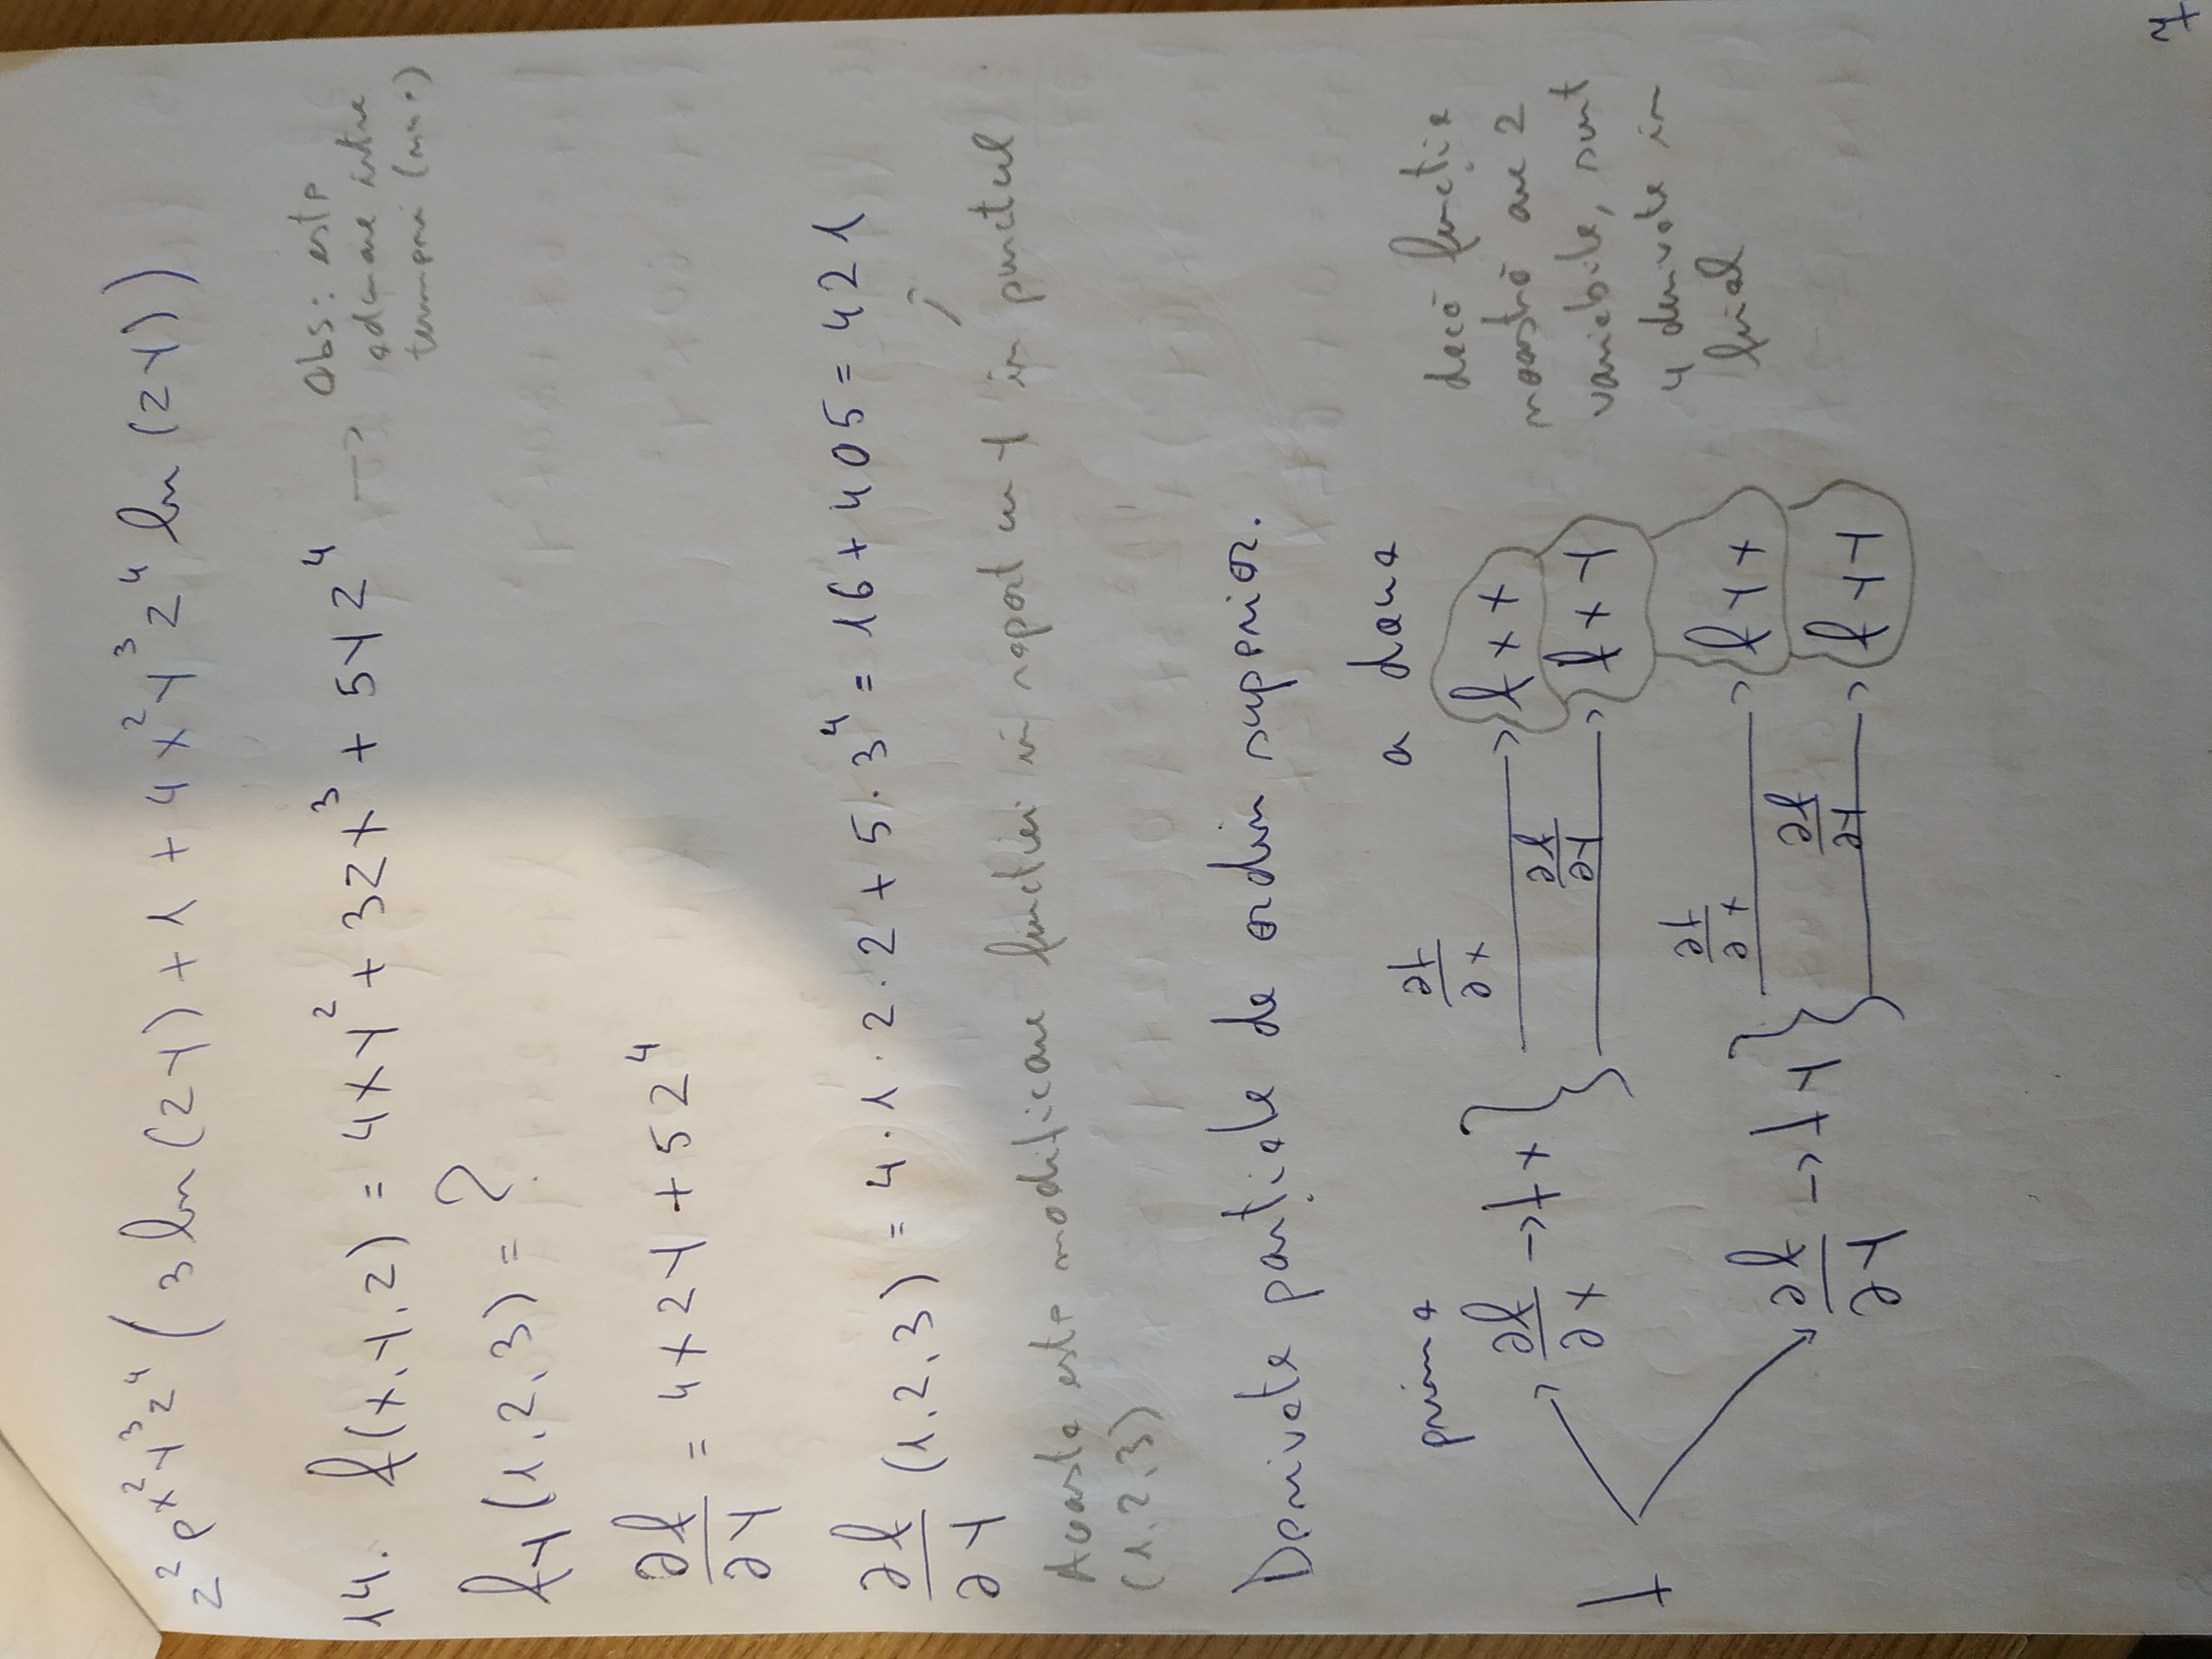 z² e^(x²y³z⁴) (3 ln(zy) + 1 + 4x²y³z⁴ ln(zy))
14. f(x,y,z) = 4xy² + 3zx³ + 5yz⁴ → Obs: este
adunare între
termeni
fy(1,2,3) = ?
∂f/∂y = 4x2y + 5z⁴
∂f/∂y (1,2,3) = 4·1·2·2 + 5·3⁴ = 16 + 405 = 421
Aceasta este modificare funcției în raport cu y în punctul
(1,2,3)
Derivate parțiale de ordin superior.
prima
∂f/∂x
a doua
f
∂f/∂x → fx
→ fxx
∂f/∂y
→ fxy
∂f/∂y → fy
∂f/∂x
→ fyx
∂f/∂y
→ fyy
dacă funcția
noastră are 2
variabile, sunt
4 derivate în
final
7